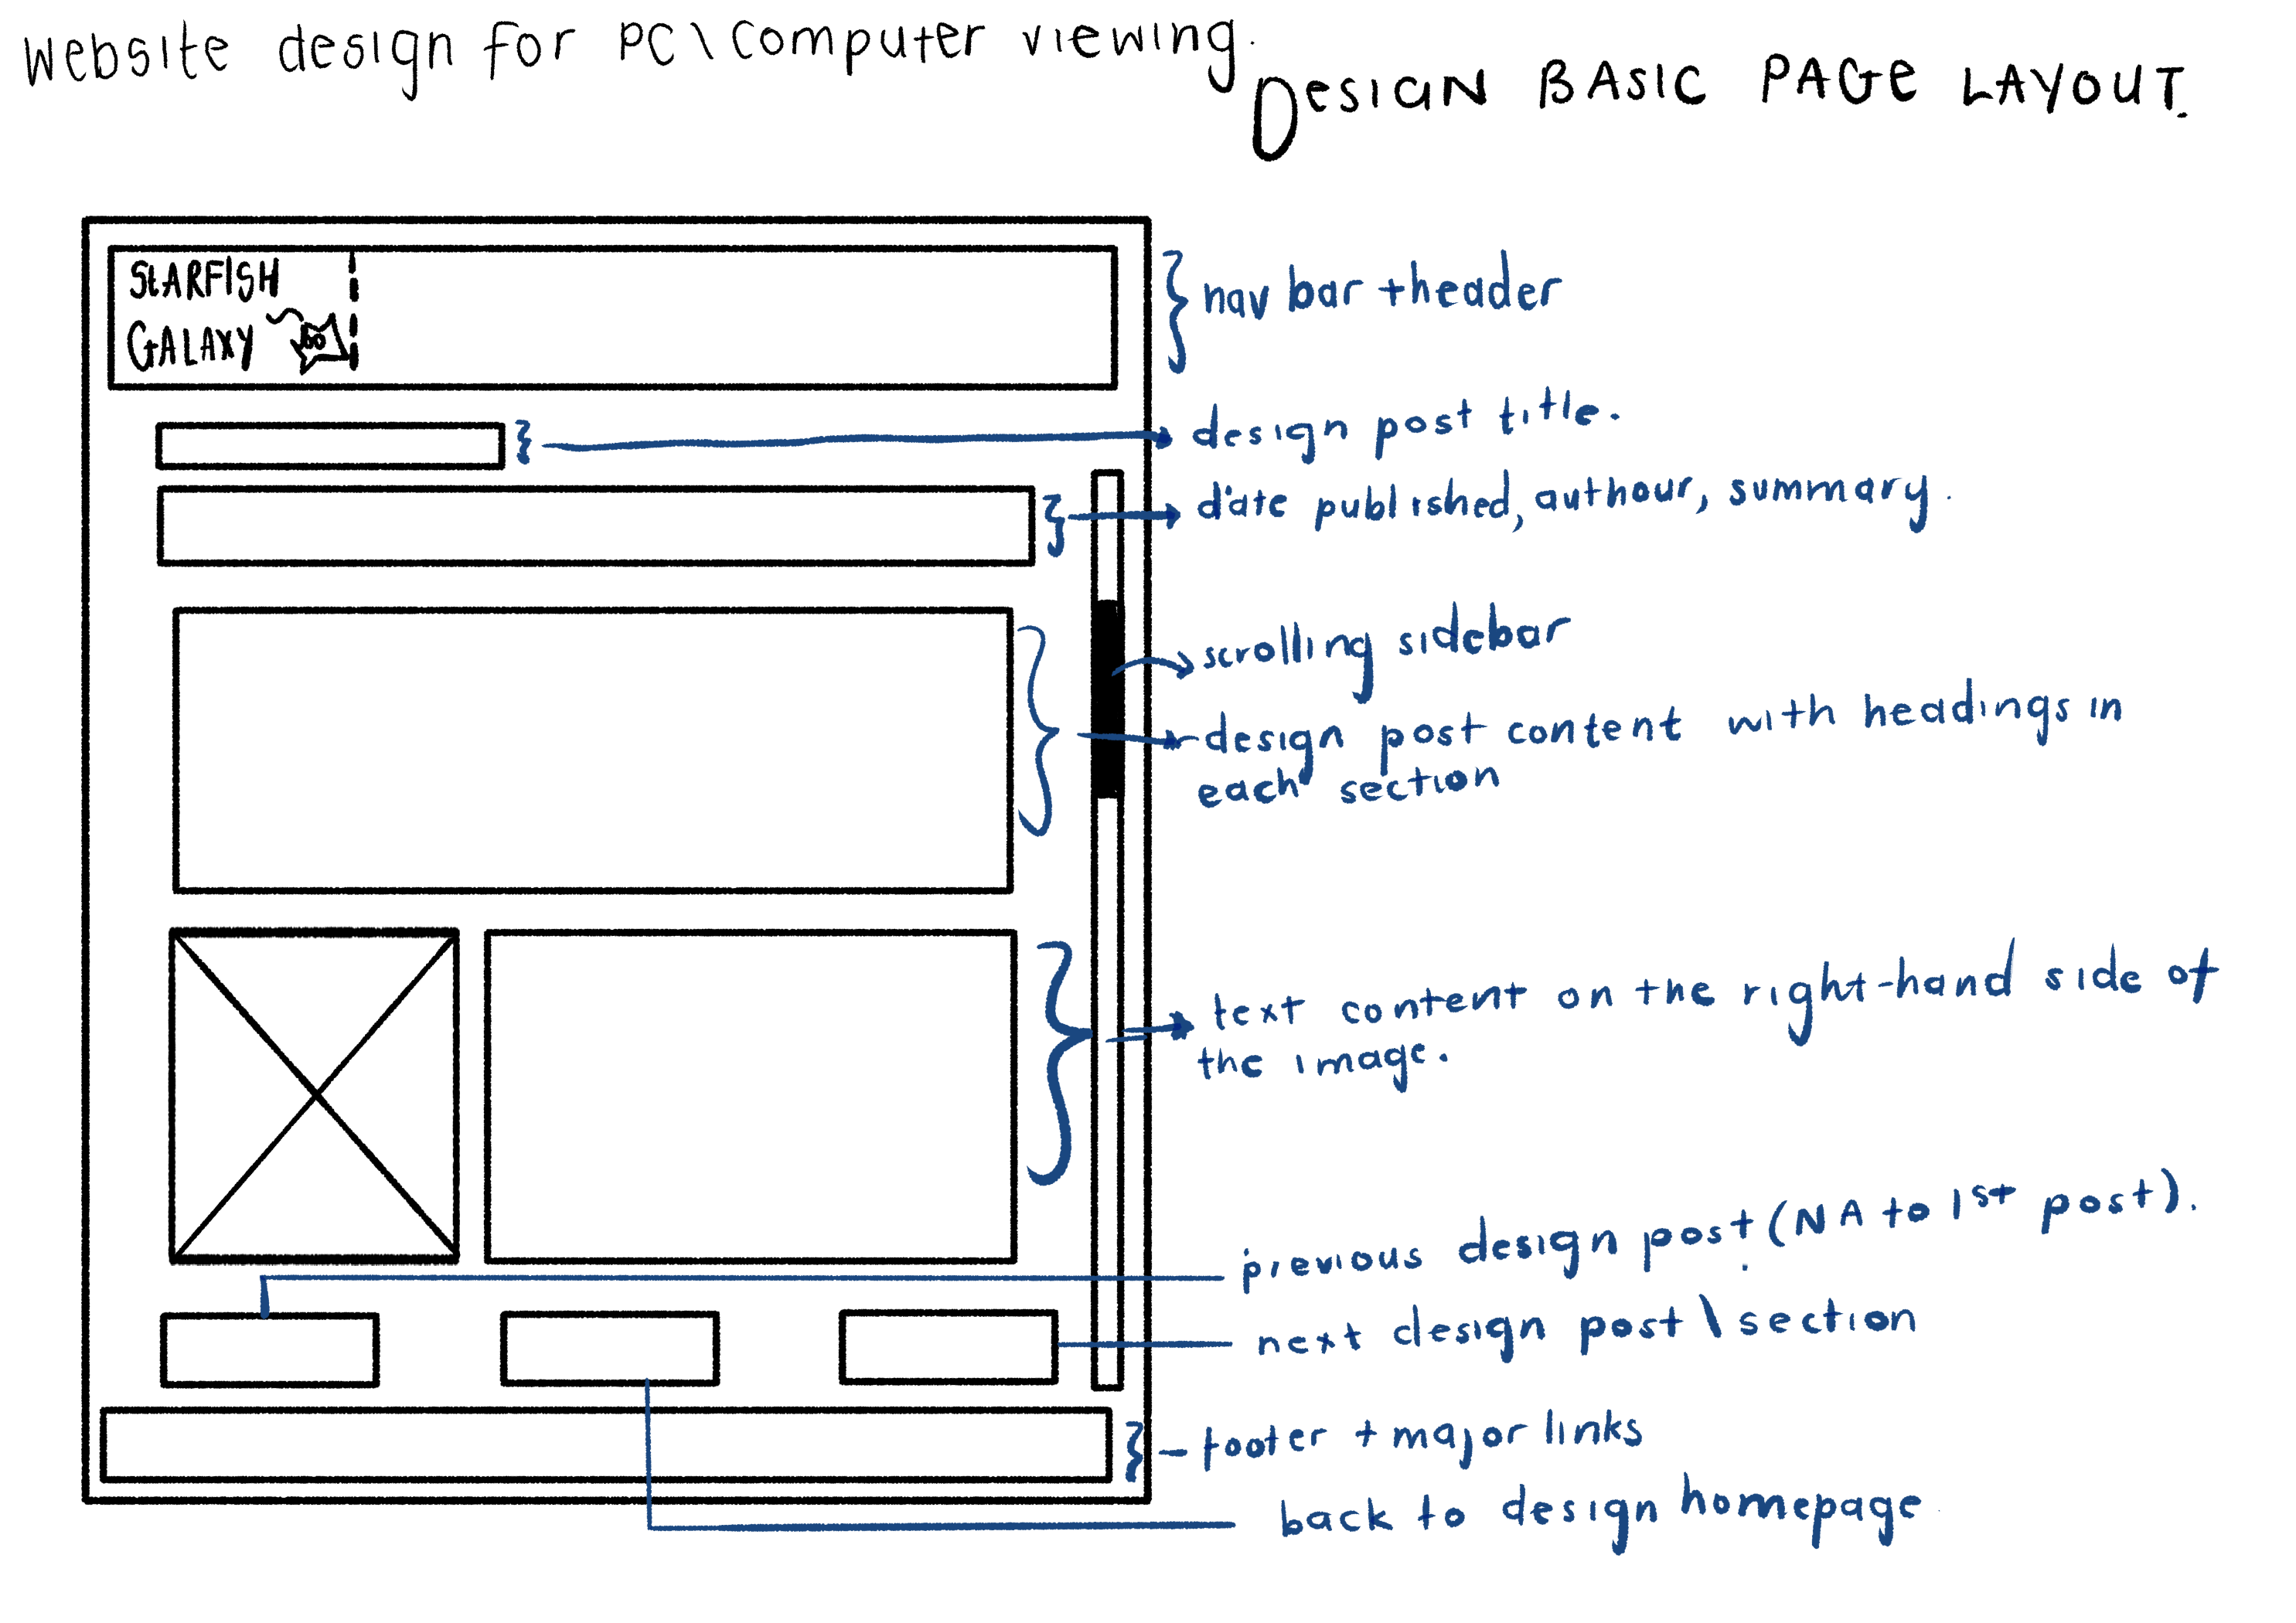 Website design for PC\Computer viewing.
DESIGN BASIC PAGE LAYOUT.
STARFISH
GALAXY
nav bar + header
design post title.
date published, authour, summary.
scrolling sidebar
design post content with headings in
each section
text content on the right-hand side of
the image.
previous design post (NA to 1st post).
next design post \ section
- footer + major links
back to design homepage